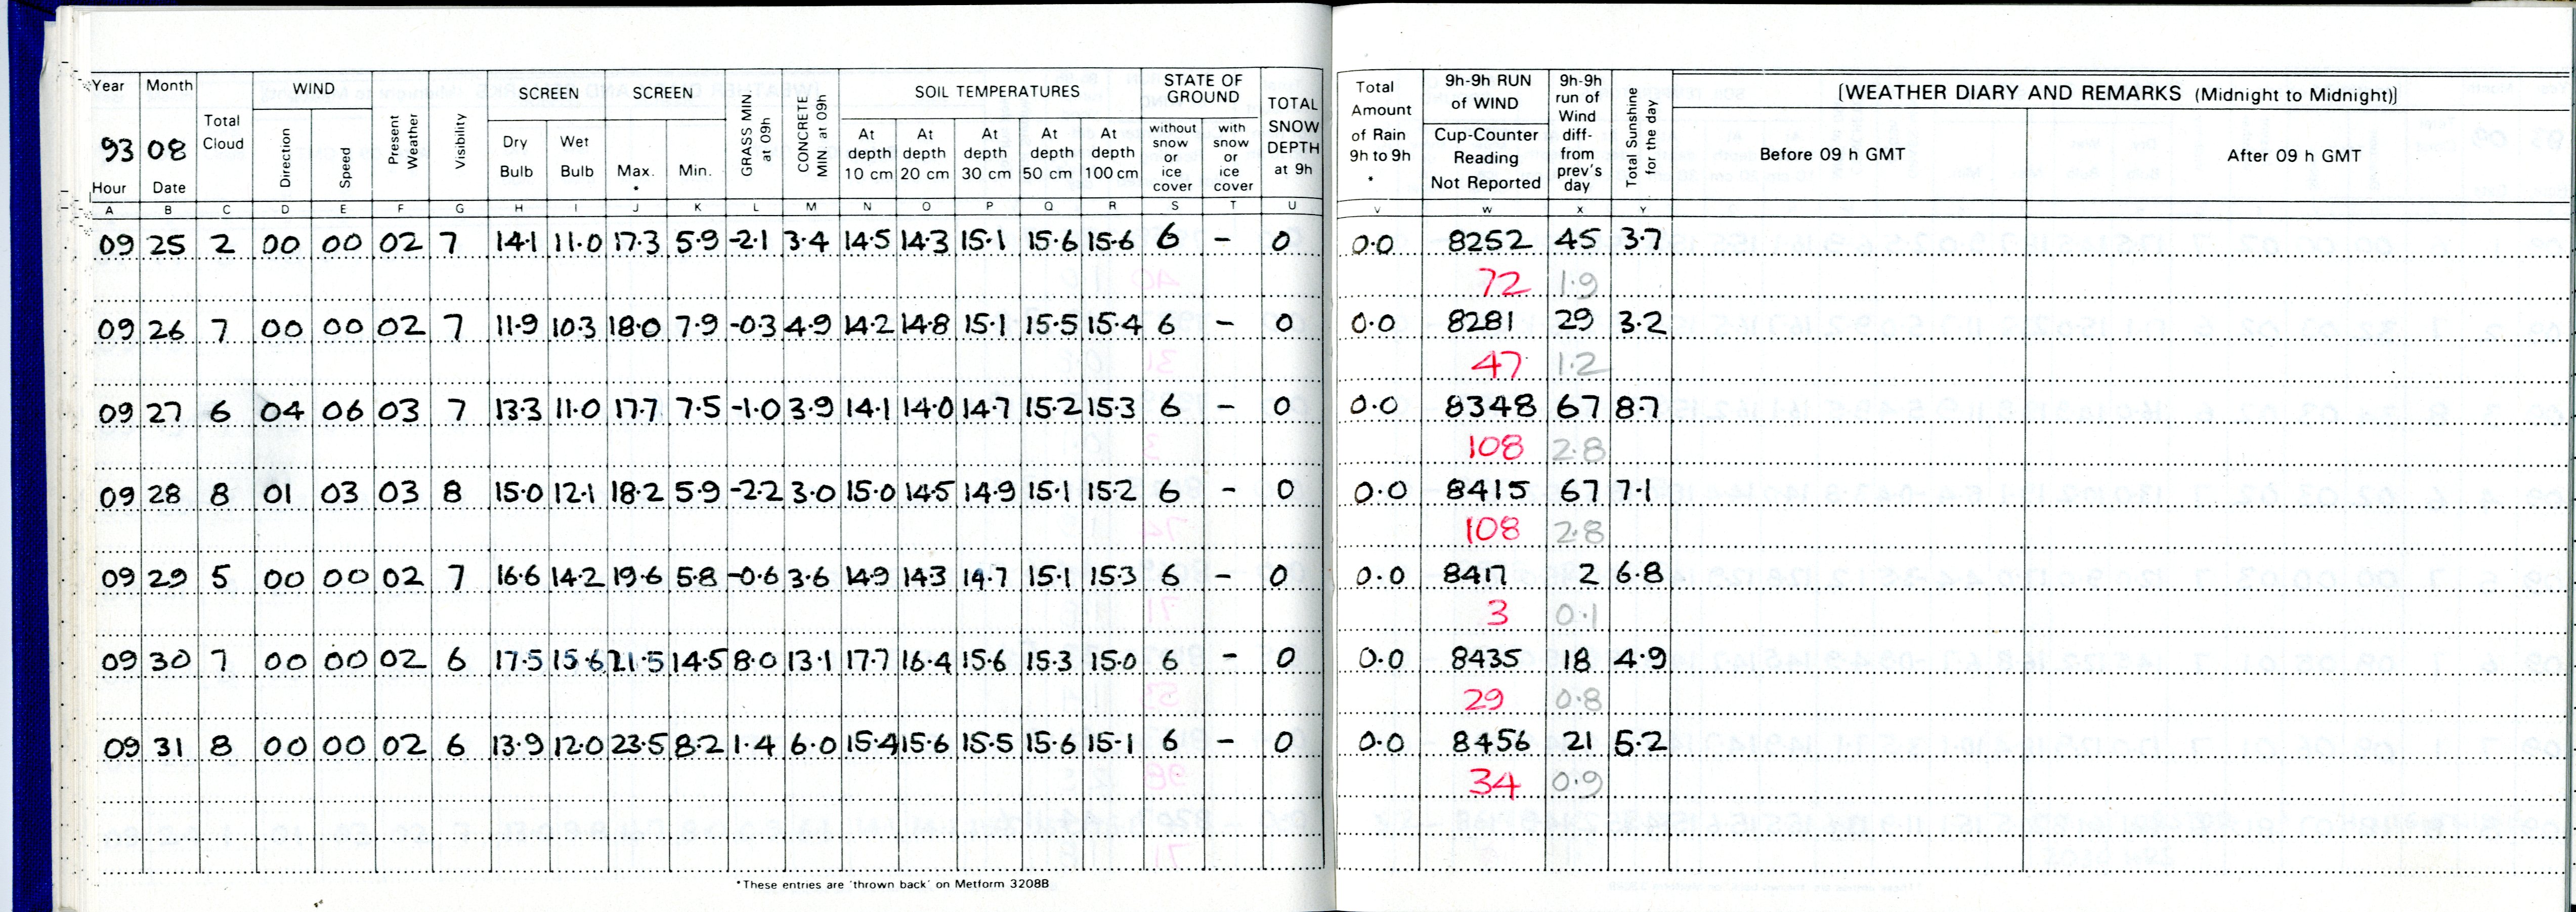 Year Month Total Cloud WIND Direction Speed Present Weather Visibility SCREEN Dry Bulb Wet Bulb SCREEN Max. * Min. GRASS MIN at 09h CONCRETE MIN. at 09h SOIL TEMPERATURES At depth 10 cm At depth 20 cm At depth 30 cm At depth 50 cm At depth 100 cm STATE OF GROUND without snow or ice cover with snow or ice cover TOTAL SNOW DEPTH at 9h Total Amount of Rain 9h to 9h * 9h-9h RUN of WIND Cup-Counter Reading Not Reported 9h-9h run of Wind diff- from prev's day Total Sunshine for the day [WEATHER DIARY AND REMARKS (Midnight to Midnight)] Before 09 h GMT After 09 h GMT
93 08
Hour Date
A B C D E F G H I J K L M N O P Q R S T U V W X Y
09 25 2 00 00 02 7 14.1 11.0 17.3 5.9 -2.1 3.4 14.5 14.3 15.1 15.6 15.6 6 - 0 0.0 8252 45 3.7
72 1.9
09 26 7 00 00 02 7 11.9 10.3 18.0 7.9 -0.3 4.9 14.2 14.8 15.1 15.5 15.4 6 - 0 0.0 8281 29 3.2
47 1.2
09 27 6 04 06 03 7 13.3 11.0 17.7 7.5 -1.0 3.9 14.1 14.0 14.7 15.2 15.3 6 - 0 0.0 8348 67 8.7
108 2.8
09 28 8 01 03 03 8 15.0 12.1 18.2 5.9 -2.2 3.0 15.0 14.5 14.9 15.1 15.2 6 - 0 0.0 8415 67 7.1
108 2.8
09 29 5 00 00 02 7 16.6 14.2 19.6 5.8 -0.6 3.6 14.9 14.3 14.7 15.1 15.3 6 - 0 0.0 8417 2 6.8
3 0.1
09 30 7 00 00 02 6 17.5 15.6 21.5 14.5 8.0 13.1 17.7 16.4 15.6 15.3 15.0 6 - 0 0.0 8435 18 4.9
29 0.8
09 31 8 00 00 02 6 13.9 12.0 23.5 8.2 1.4 6.0 15.4 15.6 15.5 15.6 15.1 6 - 0 0.0 8456 21 5.2
34 0.9
*These entries are 'thrown back' on Metform 3208B